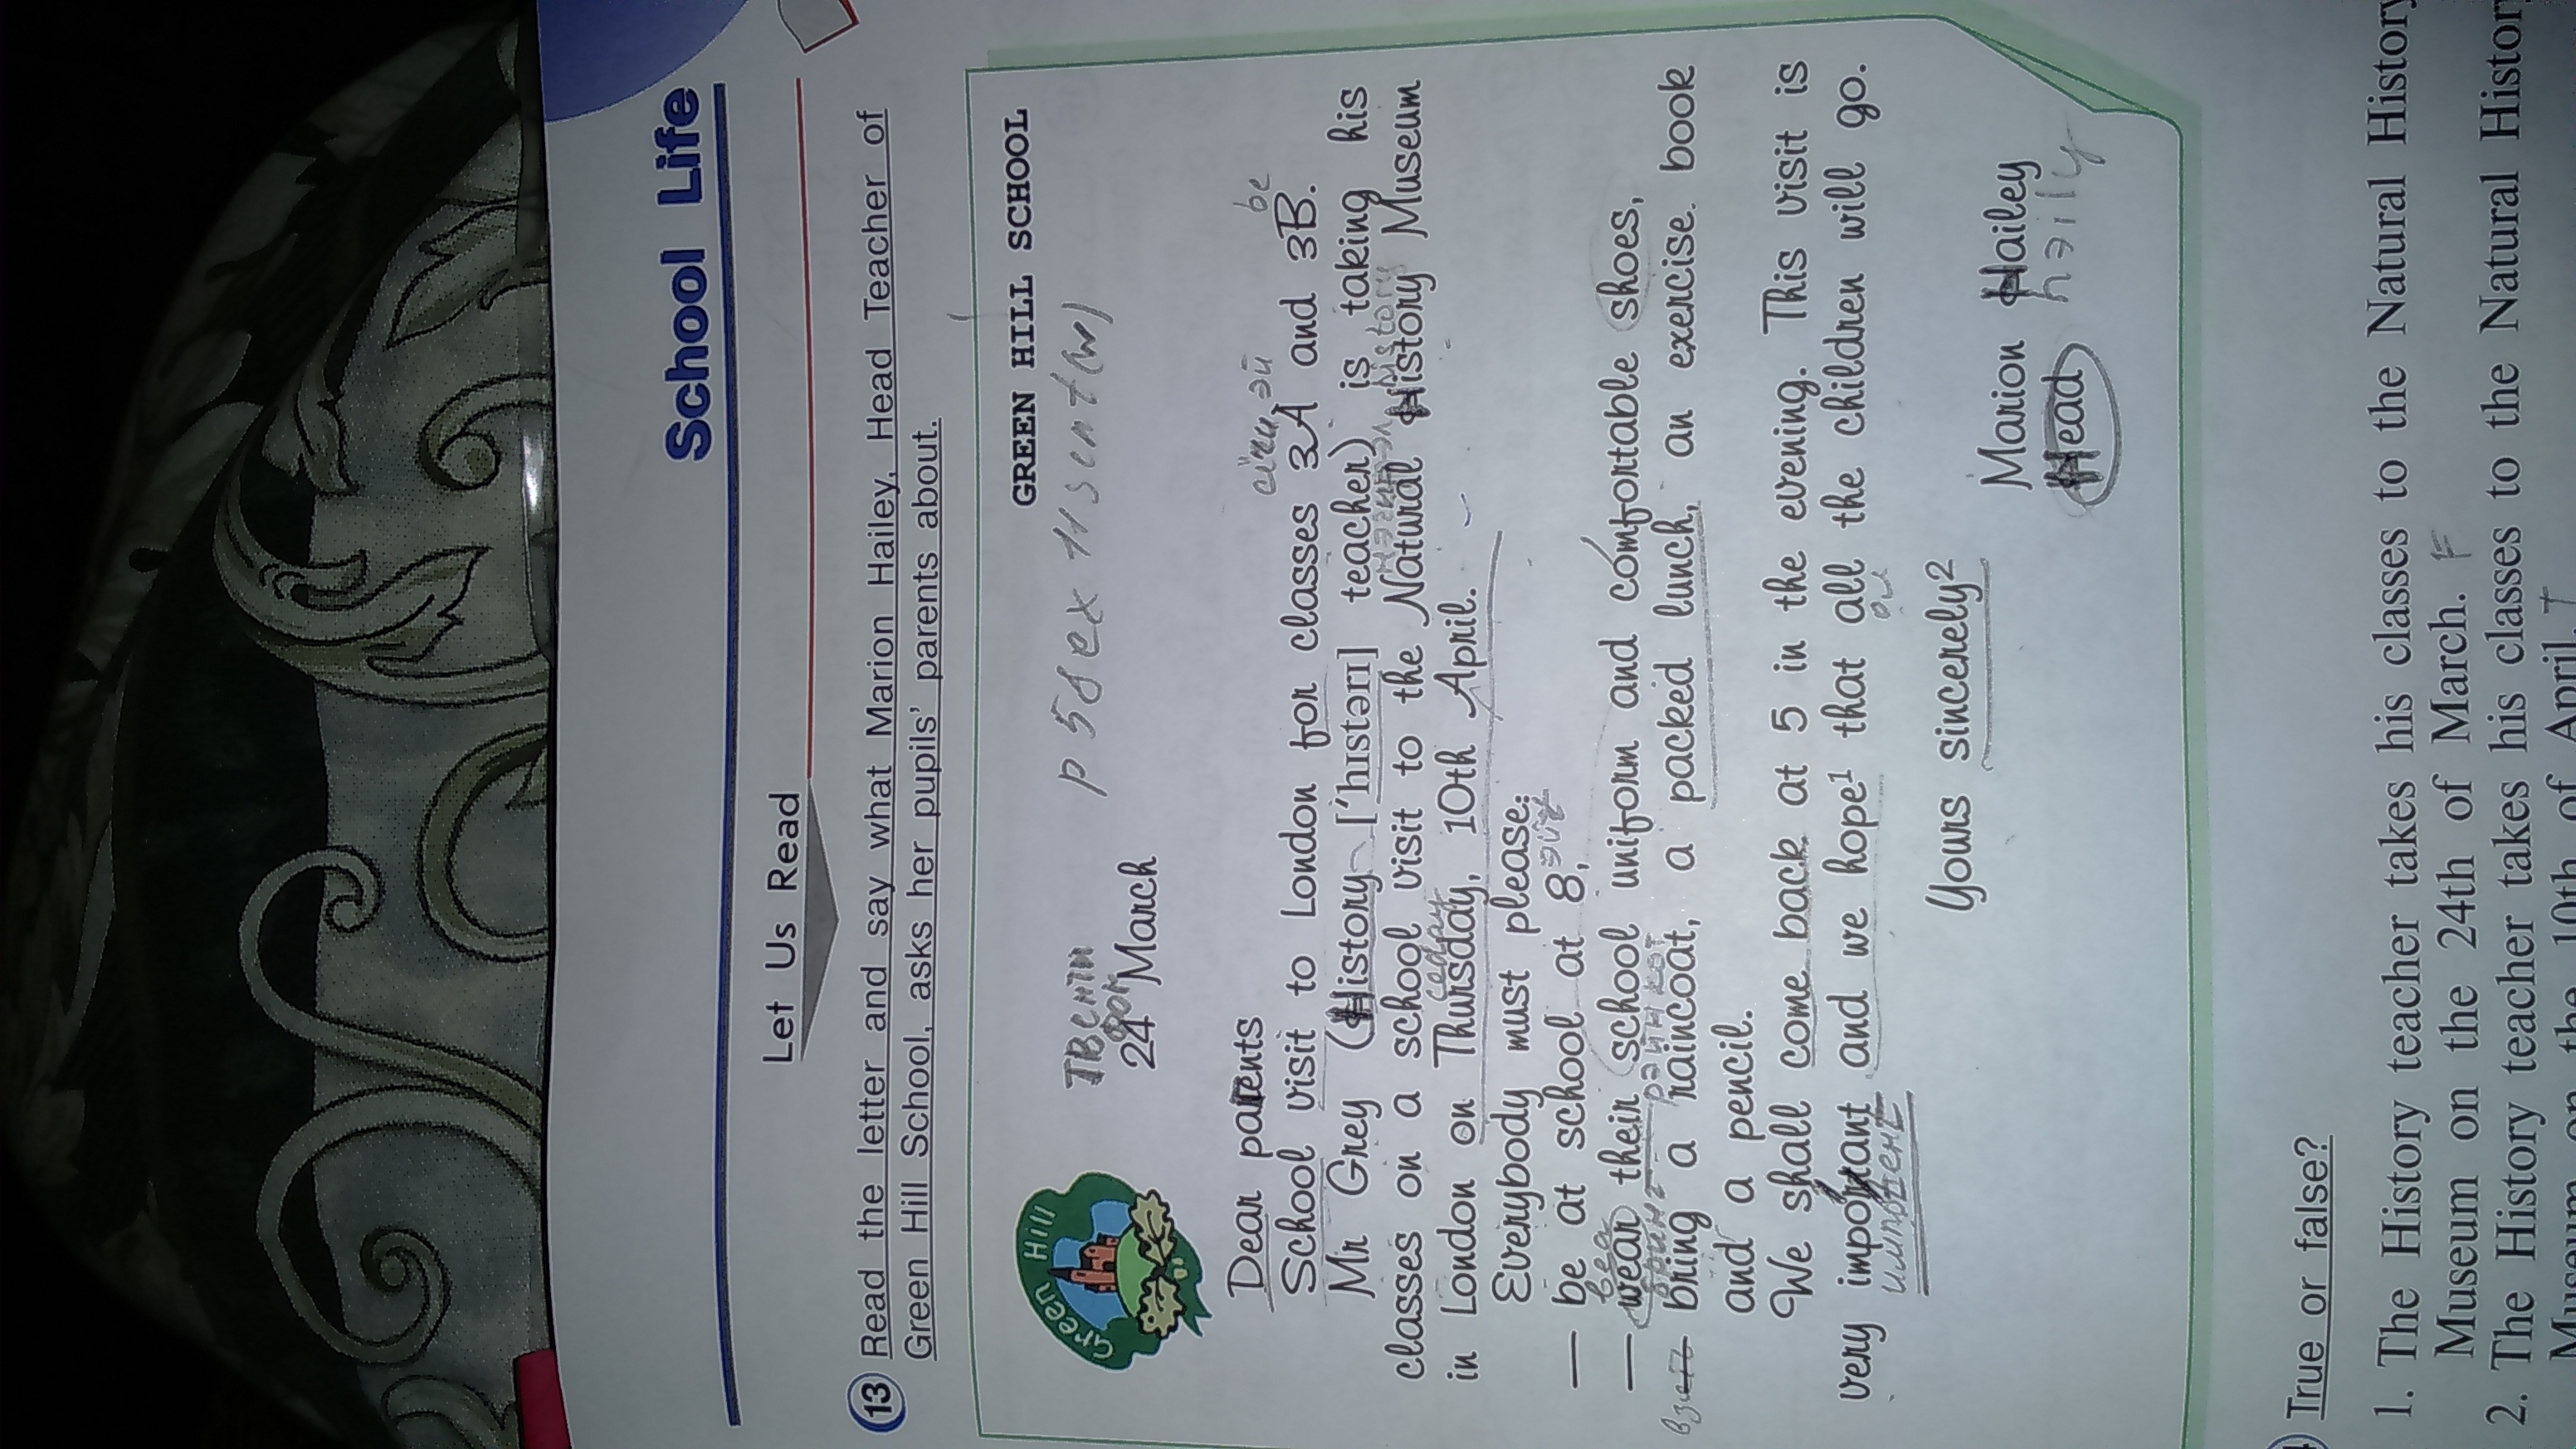 School Life
Let Us Read
13 Read the letter and say what Marion Hailey, Head Teacher of
Green Hill School, asks her pupils' parents about.
GREEN HILL SCHOOL
Green Hill
24 March
Dear parents
School visit to London for classes 3A and 3B.
Mr Grey (History ['hɪstərɪ] teacher) is taking his
classes on a school visit to the Natural History Museum
in London on Thursday, 10th April.
Everybody must please:
— be at school at 8,
— wear their school uniform and comfortable shoes,
bring a raincoat, a packed lunch, an exercise book
and a pencil.
We shall come back at 5 in the evening. This visit is
very important and we hope¹ that all the children will go.
Yours sincerely²
Marion Hailey
Head
True or false?
1. The History teacher takes his classes to the Natural History
Museum on the 24th of March. F
2. The History teacher takes his classes to the Natural History
Museum on the 10th of April. T